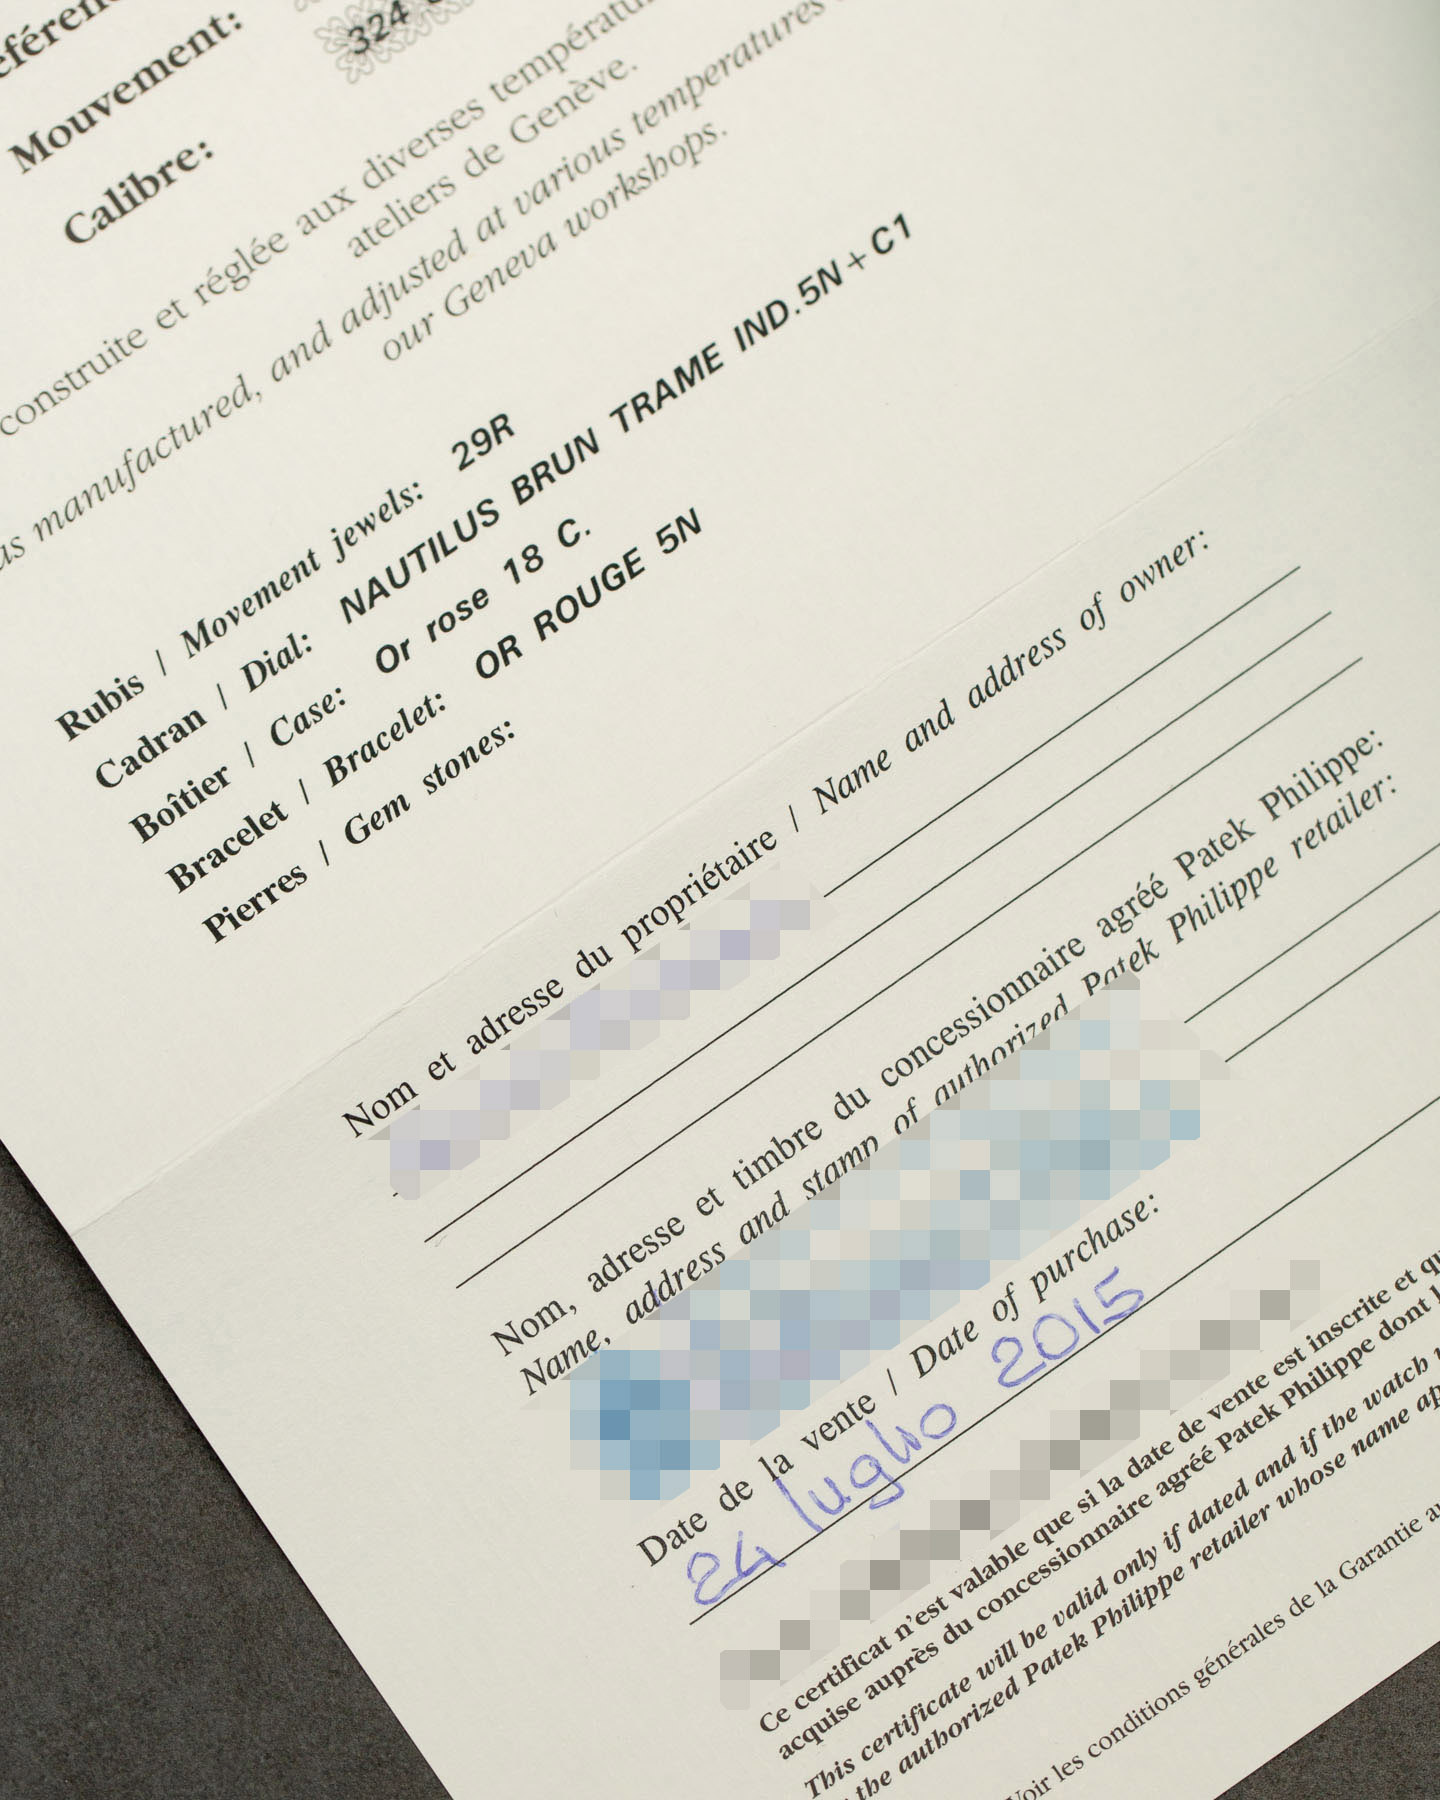 Mouvement:
324
Calibre:
construite et réglée aux diverses
ateliers de Genève.
as manufactured, and adjusted at various temperatures
our Geneva workshops.
Rubis / Movement jewels: 29R
Cadran / Dial: NAUTILUS BRUN TRAME IND.5N+C1
Boîtier / Case: Or rose 18 C.
Bracelet / Bracelet: OR ROUGE 5N
Pierres / Gem stones:
Nom et adresse du propriétaire / Name and address of owner:
Nom, adresse et timbre du concessionnaire agréé Patek Philippe:
Name, address and stamp of authorized Patek Philippe retailer:
Date de la vente / Date of purchase:
24 luglio 2015
Ce certificat n'est valable que si la date de vente est inscrite et
acquise auprès du concessionnaire agréé Patek Philippe dont
This certificate will be valid only if dated and if the watch
the authorized Patek Philippe retailer whose name
Voir les conditions générales de la Garantie